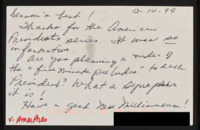 12-14-99
Season's best
Thanks for the American
Presidents series. It was so
informative.
Are you planning a video of
the "five minute preludes" to each
President? What a
it is!
Have a good New Millennium!
V-AmerPres